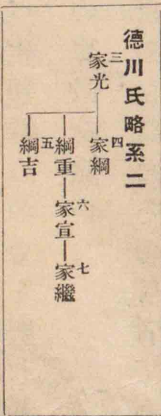 德川氏略系二
三家光
四家綱
綱重
六家宣
七家繼
五綱吉